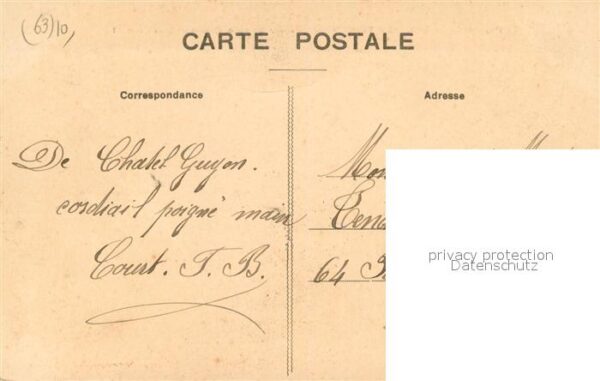 (63)10,
CARTE POSTALE
Correspondance
Adresse
De Chatel Guyon.
cordiail poigné main
Court. T. B.
64
privacy protection
Datenschutz